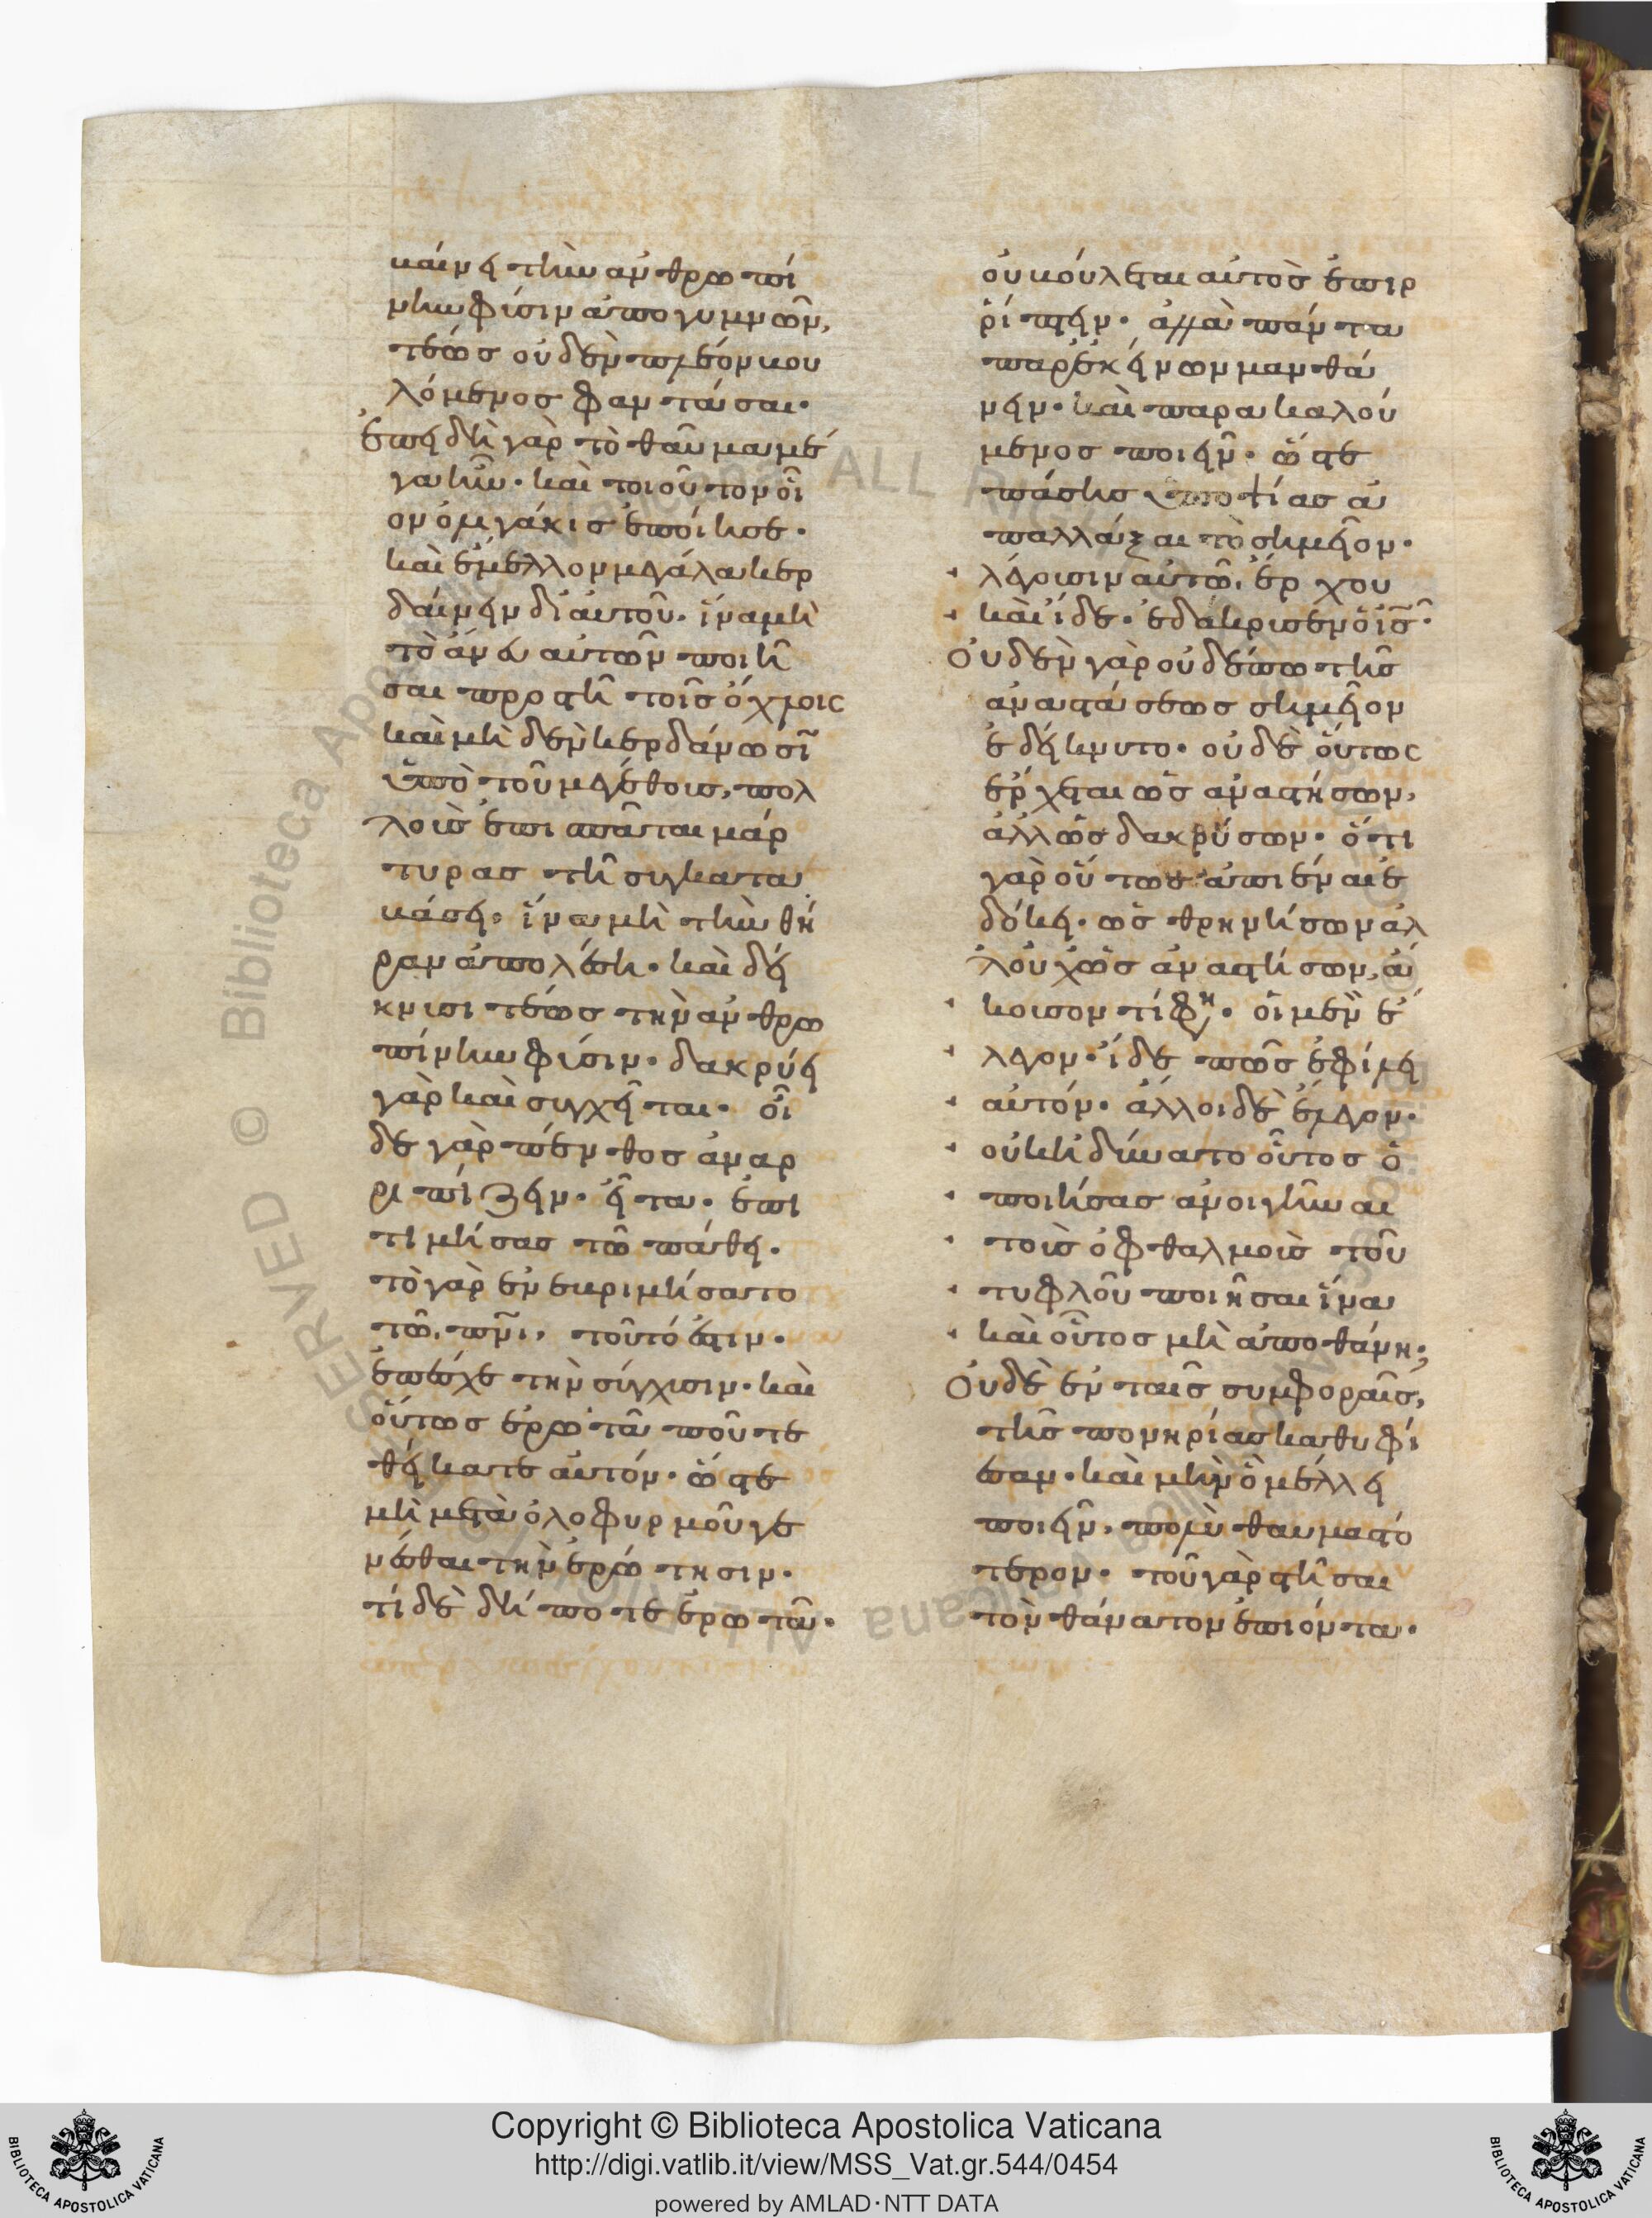 βαίνει τὴν ἀνθρωπί
νην φύσιν ἀπογυμνῶν,
τέως οὐδὲν πλέον βου
λόμενος φαντάσαι·
ἐπειδὴ γὰρ τὸ θαῦμα μέ
γα ἦν· καὶ τοιοῦτον οἷ
ον ὀλιγάκις ἐποίησε·
καὶ ἔμελλον μεγάλα κερ
δαίνειν δι' αὐτοῦ· ἵνα μὴ
τὸ ἄνευ αὐτῶν ποιῆ
σαι προστῆ τοῖς ὄχλοις
καὶ μηδὲν κερδάνωσι
ὑπὸ τοῦ μεγέθους, πολ
λοὺς ἐπισπᾶται μάρ
τυρας τῆ συγκατα
βάσει· ἵνα μὴ τὴν θή
ραν ἀπολέση· καὶ δεί
κνυσι τέως τὴν ἀνθρω
πίνην φύσιν· δακρύει
γὰρ καὶ συγχεῖται· οἶ
δε γὰρ πένθος ἀναρ
ριπίζειν· εἶτα· ἐπι
τιμήσας τῶ πάθει·
τὸ γὰρ ἐνεβριμήσατο
τῶ πνι, τοῦτό ἐστιν·
ἐπέσχε τὴν σύγχυσιν· καὶ
οὕτως ἐρωτᾶ ποῦ τε
θείκατε αὐτόν· ὥστε
μὴ μετὰ ὀλοφυρμοῦ γε
νέσθαι τὴν ἐρώτησιν·
τί δὲ δή ποτε ἐρωτᾶ·
οὐ βούλεται αὐτὸς ἐπιρ
ρίπτειν· ἀλλὰ πάντα
παρ' ἐκείνων μανθά
νειν· καὶ παρακαλού
μενος ποιεῖν· ὥστε
πάσης ὑποψίας ἀ
παλλάξαι τὸ σημεῖον·
λέγουσιν αὐτῶ, ἔρχου
καὶ ἴδε· ἐδάκρυσεν ὁ ις·
Οὐδὲν γὰρ οὐδέπω τῆς
ἀναστάσεως σημεῖον
ἐδείκνυτο· οὐδὲ οὕτως
ἔρχεται ὡς ἀναστήσων,
ἀλλ' ὡς δακρύσων· ὅτι
γὰρ οὕτως ἀπιέναι ἐ
δόκει· ὡς θρηνήσων ἀλ
λ' οὐχ ὡς ἀναστήσων, ἄ
κουσον τί φη· οἱ μὲν ἔ
λεγον· ἴδε πῶς ἐφίλει
αὐτόν· ἄλλοι δὲ ἔλεγον·
οὐκ ἠδύνατο οὗτος ὁ
ποιήσας ἀνοιγῆναι
τοὺς ὀφθαλμοὺς τοῦ
τυφλοῦ ποιῆσαι ἵνα
καὶ οὗτος μὴ ἀποθάνη;
Οὐδὲ ἐν ταῖς συμφοραῖς,
τῆς πονηρίας καθυφί
εσαν· καὶ μὴν ὃ μέλλει
ποιεῖν, πολὺ θαυμαστό
τερον· τοῦ γὰρ στῆσαι
τὸν θάνατον ἐπιόντα·
Copyright © Biblioteca Apostolica Vaticana
http://digi.vatlib.it/view/MSS_Vat.gr.544/0454
powered by AMLAD·NTT DATA